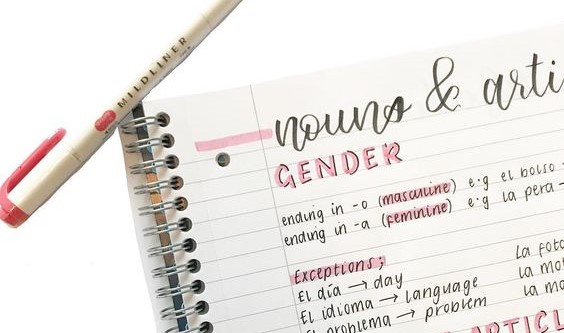 MILDLINER
nouns & arti
GENDER
ending in -o (masculine) e.g el bolso -
ending in -a (feminine) e.g la pera -
Exceptions;
El día → day
El idioma → language
El problema → problem
La foto
la mo
la mo
ARTICL